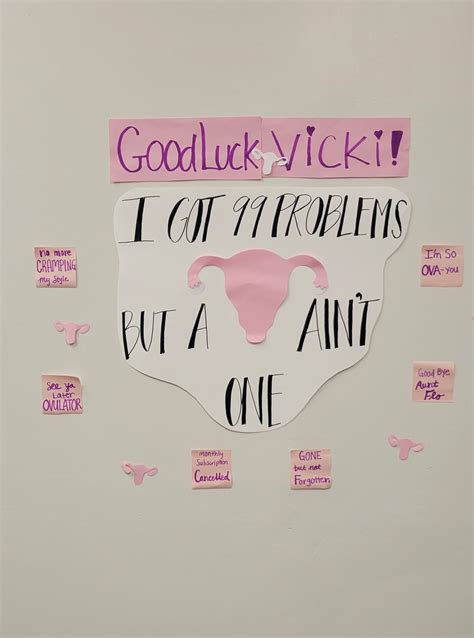 Good Luck Vicki!
I GOT 99 PROBLEMS
BUT A AIN'T
ONE
no more
CRAMPING
my style
I'm so
OVA-you
See ya
Later
OVULATOR
Good Bye
Aunt
Flo
monthly
Subscription
Cancelled
GONE
but not
Forgotten